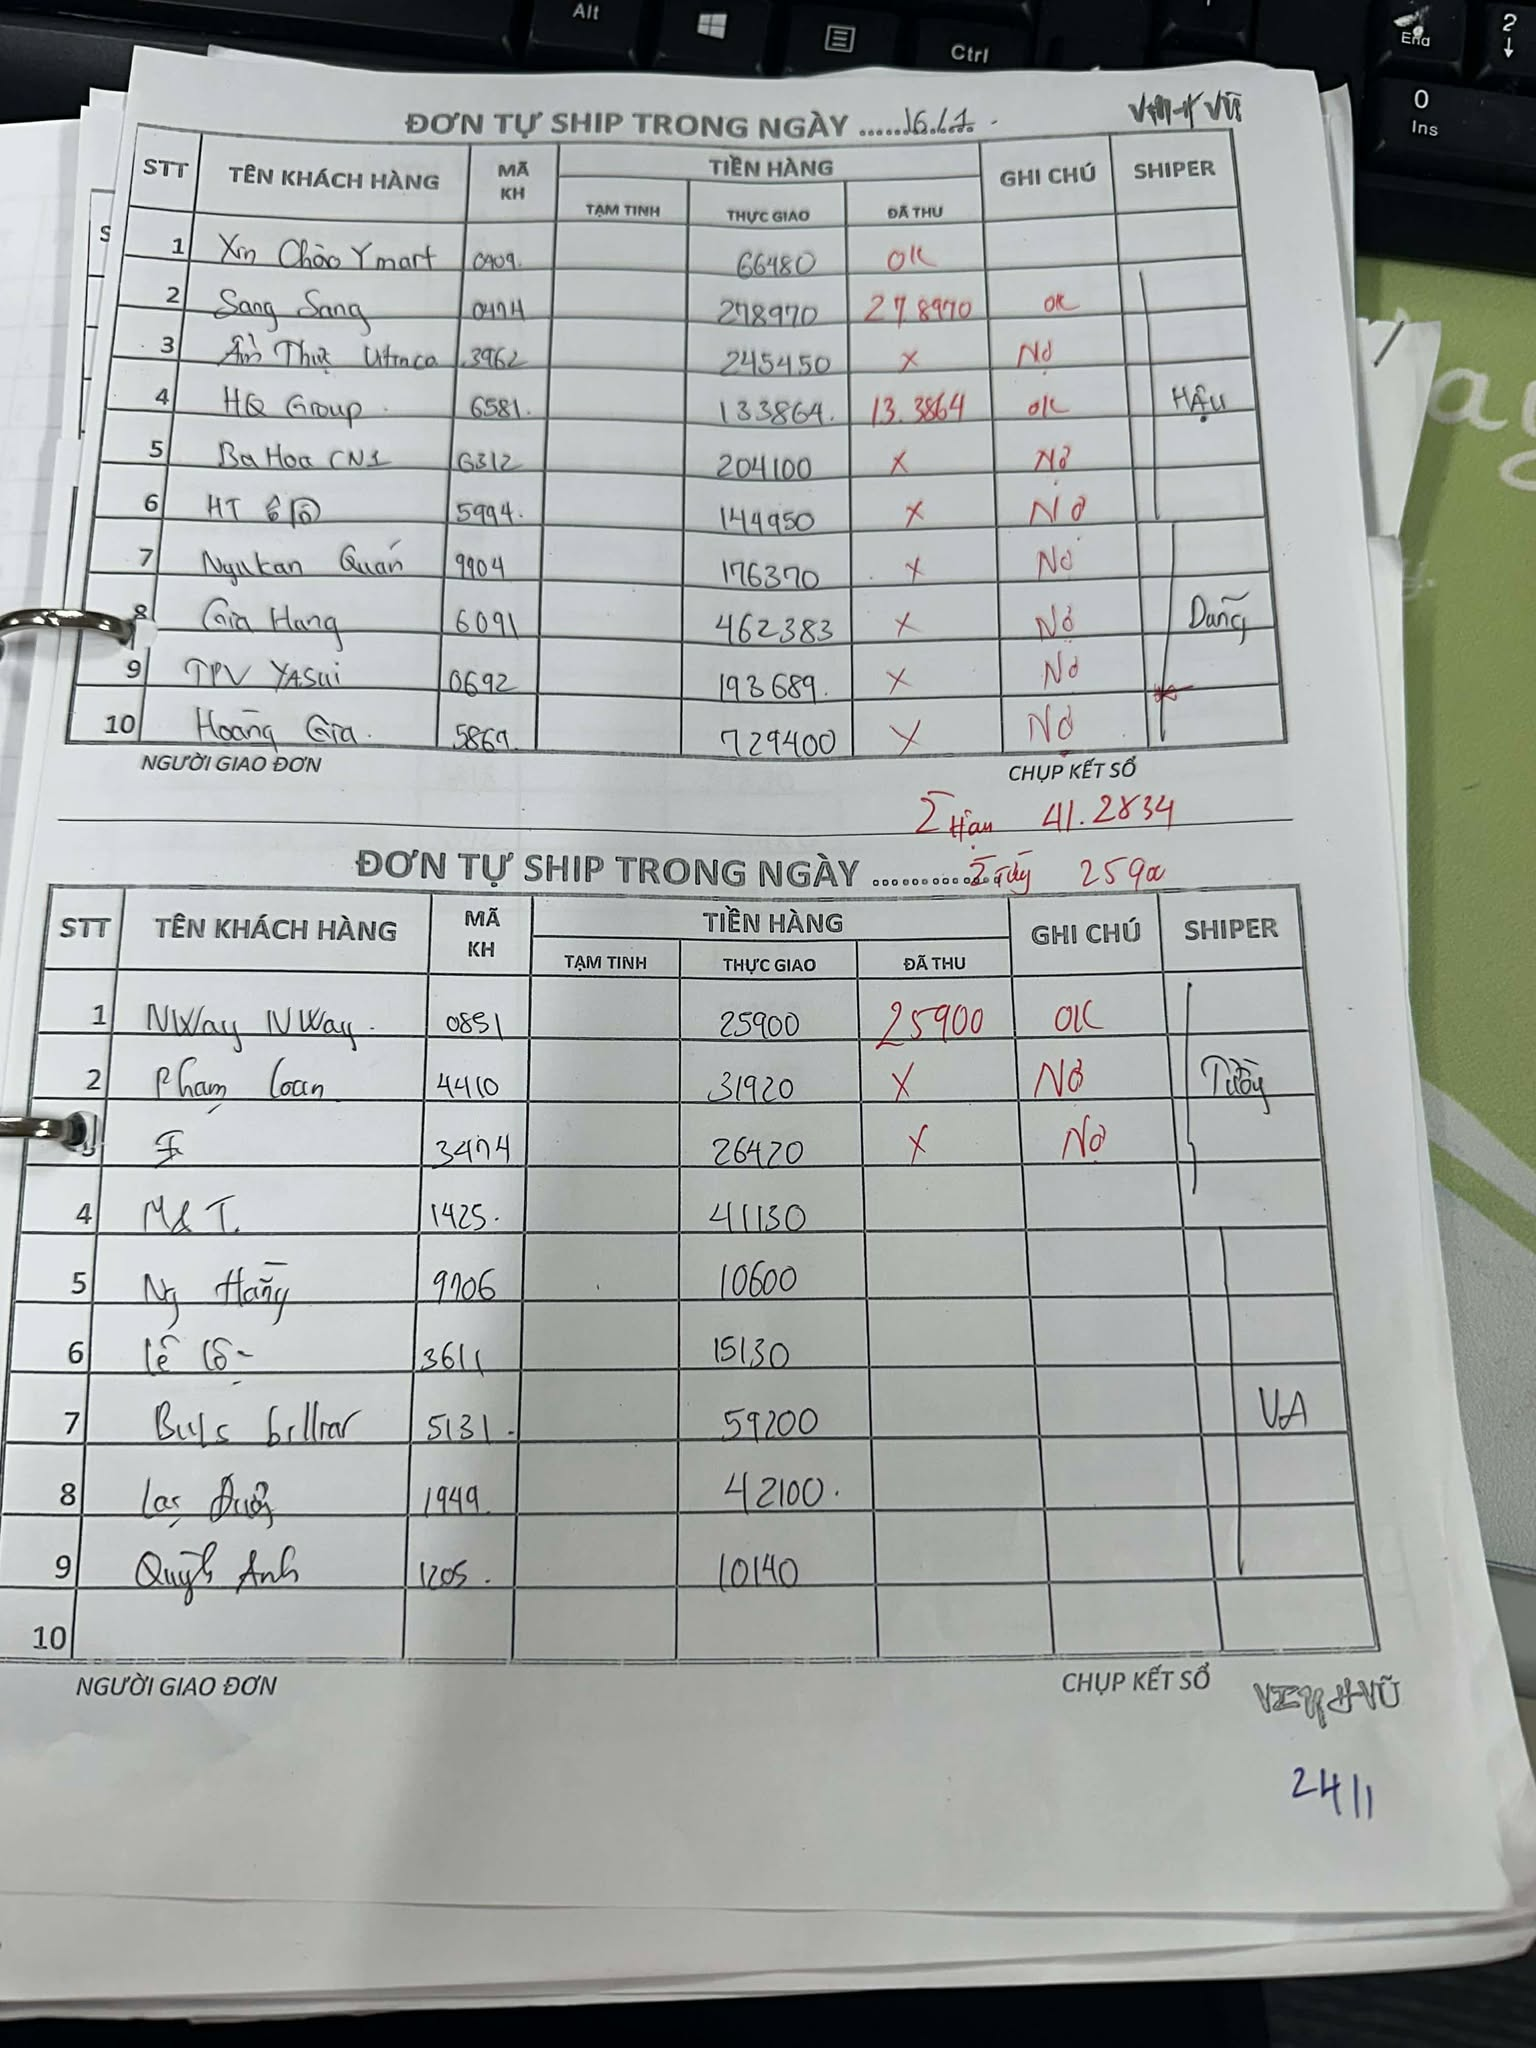 Alt
Ctrl
End
2
↓
0
Ins
ĐƠN TỰ SHIP TRONG NGÀY ......16./.1...
STT TÊN KHÁCH HÀNG MÃ KH TIỀN HÀNG GHI CHÚ SHIPER
TẠM TINH THỰC GIAO ĐÃ THU
1 Xin Chào Ymart 0909. 66480 OK
2 Sang Sang 0474 278970 278970 OK
3 Ẩm Thực 3962 245450 X Nợ
4 HQ Group. 6581. 133864. 13.3864 OK Hậu
5 Ba Hoa CN1 6312 204100 X Nợ
6 HT 5994. 144950 X Nợ
7 Quán 9904 176370 X Nợ
8 Gia Hang 6091 462383 X Nợ
9 TPV YASUI 0692 193689. X Nợ
10 Hoàng Gia. 5867. 729400 X Nợ
NGƯỜI GIAO ĐƠN CHỤP KẾT SỔ
Σ Hậu 41.2834
ĐƠN TỰ SHIP TRONG NGÀY ............
STT TÊN KHÁCH HÀNG MÃ KH TIỀN HÀNG GHI CHÚ SHIPER
TẠM TINH THỰC GIAO ĐÃ THU
1 NWay NWay. 0851 25900 25900 OK
2 Phạm Loan 4410 31920 X Nợ
3474 26420 X Nợ
4 M&T. 1425. 41130
5 Ng Hằng 9706 10600
6 Lê Lộ 3611 15130
7 5131. 59200 VA
8 Lạc 1949. 42100.
9 Quỳnh Anh 1205. 10140
10
NGƯỜI GIAO ĐƠN CHỤP KẾT SỔ
24/1